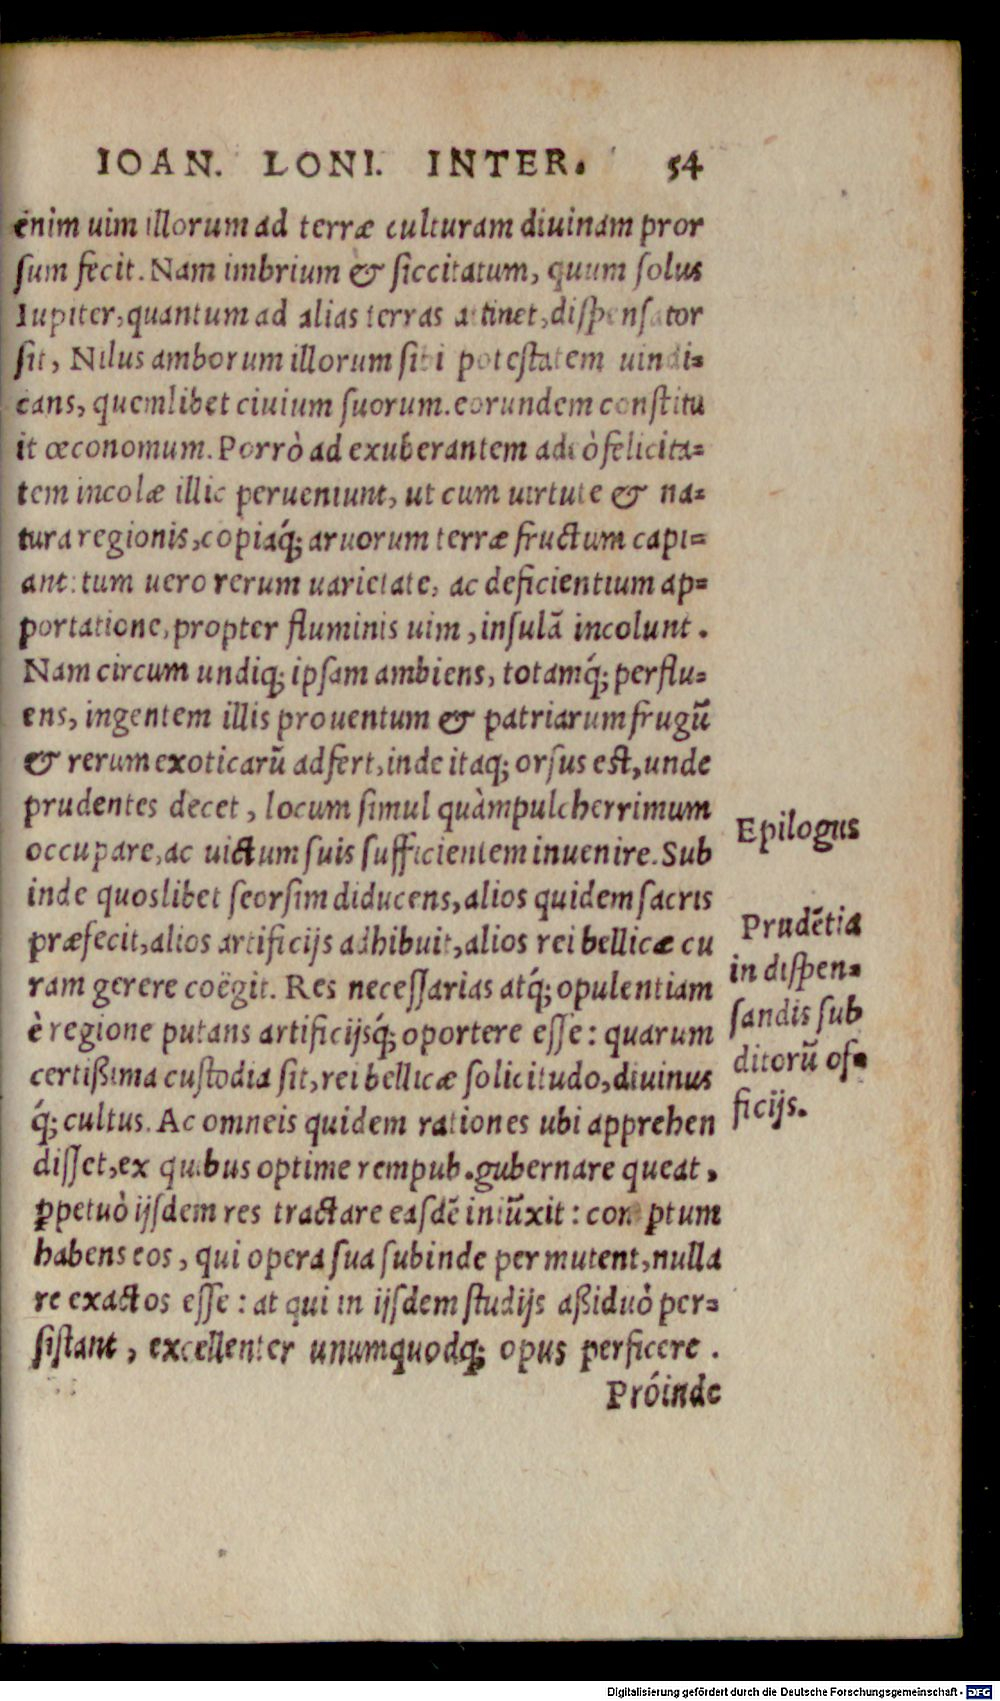 IOAN. LONI. INTER. 54
enim uim illorum ad terræ culturam diuinam pror
sum fecit. Nam imbrium & siccitatum, quum solus
Iupiter, quantum ad alias terras attinet, dispensator
sit, Nilus amborum illorum sibi potestatem uindi=
cans, quemlibet ciuium suorum. eorundem constitu
it œconomum. Porrò ad exuberantem adeò felicita=
tem incolæ illic perueniunt, ut cum uirtute & na=
tura regionis, copiaq́; aruorum terræ fructum capi=
ant: tum uero rerum uarietate, ac deficientium ap=
portatione, propter fluminis uim, insulã incolunt.
Nam circum undiq; ipsam ambiens, totamq́; perflu=
ens, ingentem illis prouentum & patriarum frugũ
& rerum exoticarũ adfert, inde itaq; orsus est, unde
prudentes decet, locum simul quàm pulcherrimum
occupare, ac uictum suis sufficientem inuenire. Sub
inde quoslibet seorsim diducens, alios quidem sacris
præfecit, alios artificijs adhibuit, alios rei bellicæ cu
ram gerere coëgit. Res necessarias atq́; opulentiam
è regione putans artificijsq́; oportere esse: quarum
certißima custodia sit, rei bellicæ solicitudo, diuinus
q́; cultus. Ac omneis quidem rationes ubi apprehen
disset, ex quibus optime rempub. gubernare queat,
ꝑpetuò ijsdem res tractare easdẽ iniũxit: com ꝑtum
habens eos, qui opera sua subinde permutent, nulla
re exactos esse: at qui in ijsdem studijs aßiduò per=
sistant, excellenter unumquodq; opus perficere.
Próinde
Epilogus
Prudẽtia
in dispen=
sandis sub
ditorũ of=
ficijs.
Digitalisierung gefördert durch die Deutsche Forschungsgemeinschaft - DFG